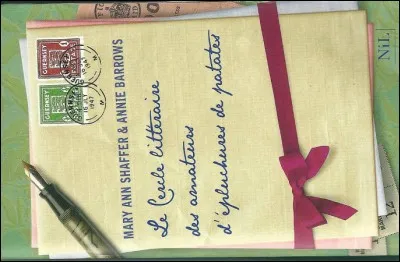 MARY ANN SHAFFER & ANNIE BARROWS
Le Cercle littéraire
des amateurs
d'épluchures de patates
NiL
GUERNSEY
POSTAGE
GUERNSEY
POSTAGE